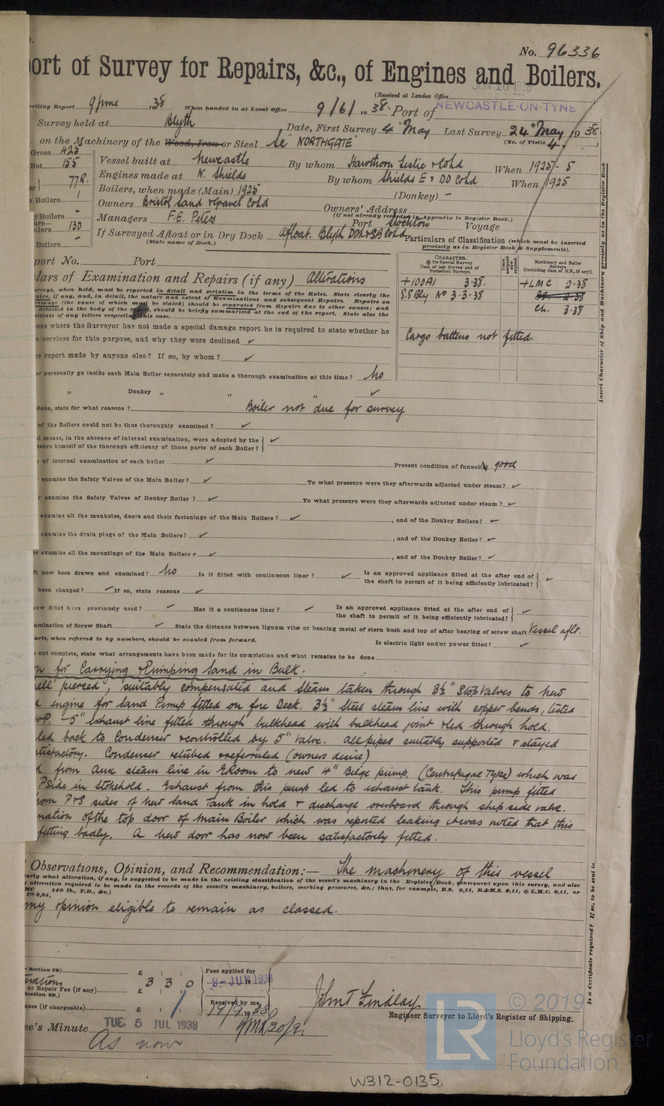 No. 96336
ort of Survey for Repairs, &c., of Engines and Boilers.
(Received at London Office
riting Report 9 June 1938 When handed in at Local Office 9/6/1938 Port of NEWCASTLE-ON-TYNE
Survey held at Blyth Date, First Survey 4 May Last Survey 24 May 1938
(No. of Visits 4
on the Machinery of the Wood, Iron or Steel Sc NORTHGATE
Gross 423
Net 155
Vessel built at Newcastle By whom Hawthorn Leslie & Co Ld When 1925-5
Engines made at N. Shields By whom Shields E & DD Co Ld When 1925
77R.
Boilers, when made (Main) 1925 (Donkey) -
Owners Bristol Sand & Gravel Co Ld Owners' Address
(if not already recorded in Appendix to Register Book.)
Managers F.E. Peters Port Voyage
130
If Surveyed Afloat or in Dry Dock Afloat. Blyth
(State name of Dock.)
Particulars of Classification (which must be inserted precisely as in Register Book & Supplements).
port No. Port
lars of Examination and Repairs (if any) Alterations
CHARACTER.
Machinery and Boiler Surveys
+100A1 3.38
+LMC 2.38
S.S. Bly No 3-3.38
CL. 3.38
Cargo battens not fitted.
es where the Surveyor has not made a special damage report he is required to state whether he
services for this purpose, and why they were declined ✓
report made by anyone else? If so, by whom? ✓
personally go inside each Main Boiler separately and make a thorough examination at this time? No
" Donkey " " " ✓
state for what reasons? Boiler not due for survey
of the Boilers could not be thus thoroughly examined? ✓
means, in the absence of internal examination, were adopted by the
of the thorough efficiency of those parts of each Boiler? ✓
of internal examination of each boiler ✓ Present condition of funnel(s) good
examine the Safety Valves of the Main Boiler? ✓ To what pressure were they afterwards adjusted under steam? ✓
examine the Safety Valves of Donkey Boiler? ✓ To what pressure were they afterwards adjusted under steam? ✓
examine all the manholes, doors and their fastenings of the Main Boilers? ✓ , and of the Donkey Boilers? ✓
examine the drain plugs of the Main Boilers? ✓ , and of the Donkey Boiler? ✓
examine all the mountings of the Main Boilers? ✓ , and of the Donkey Boiler? ✓
now been drawn and examined? No Is it fitted with continuous liner? ✓ Is an approved appliance fitted at the after end of the shaft to permit of it being efficiently lubricated? ✓
been changed? ✓ If so, state reasons ✓
now fitted been previously used? ✓ Has it a continuous liner? ✓ Is an approved appliance fitted at the after end of the shaft to permit of it being efficiently lubricated? ✓
mination of Screw Shaft ✓ State the distance between lignum vitæ or bearing metal of stern bush and top of after bearing of screw shaft Vessel aflt.
arts, when referred to by numbers, should be counted from forward. Is electric light and/or power fitted? ✓
not complete, state what arrangements have been made for its completion and what remains to be done
for Carrying & Pumping Sand in Bulk.
ell pierced, suitably compensated and steam taken through 3½" Stop Valves to new
engine for Sand Pump fitted on fore Deck. 3½" steel steam line with copper bends, tested
WP. 5" exhaust line fitted through bulkhead with bulkhead joint & led through hold.
led back to Condenser & controlled by 5" valve. All pipes suitably supported & stayed
tisfactory. Condenser retubed & referruled (owners desire)
from Aux steam line in E Room to new 4" Bilge pump. (Centrifugal Type) which was
P side in Stokehold. Exhaust from this pump led to exhaust tank. This pump fitted
rom P&S sides of new Sand Tank in hold & discharge overboard through ship side valve.
nation of the top door of Main Boiler which was reported leaking it was noted that this
fitting badly. A new door has now been satisfactorily fitted.
Observations, Opinion, and Recommendation:— The machinery of this vessel
my opinion eligible to remain as classed.
Fees applied for
9-JUN 1938
3 3 0
or Repair Fee (if any)
Received by me,
(if chargeable)
John T Findlay
Engineer Surveyor to Lloyd's Register of Shipping.
ee's Minute TUE 5 JUL 1938
As now
W312-0135
Insert Character of Ship and Machinery precisely as in the Register Book
Is a Certificate required? If so, to be sent to
LR
© 2019
Lloyd's Register
Foundation